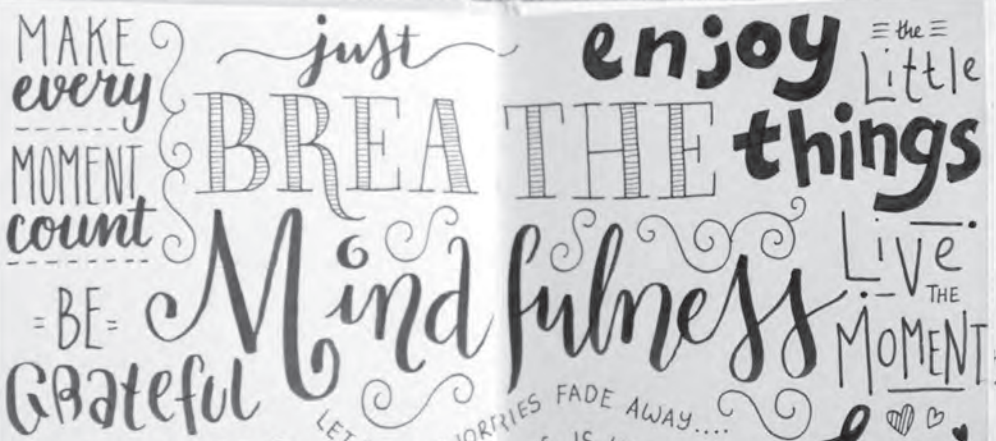 MAKE
every
MOMENT
count
just
BREATHE
enjoy
the
Little
things
Mindfulness
Live
THE
MOMENT
BE
GRateful
LET
FADE AWAY....